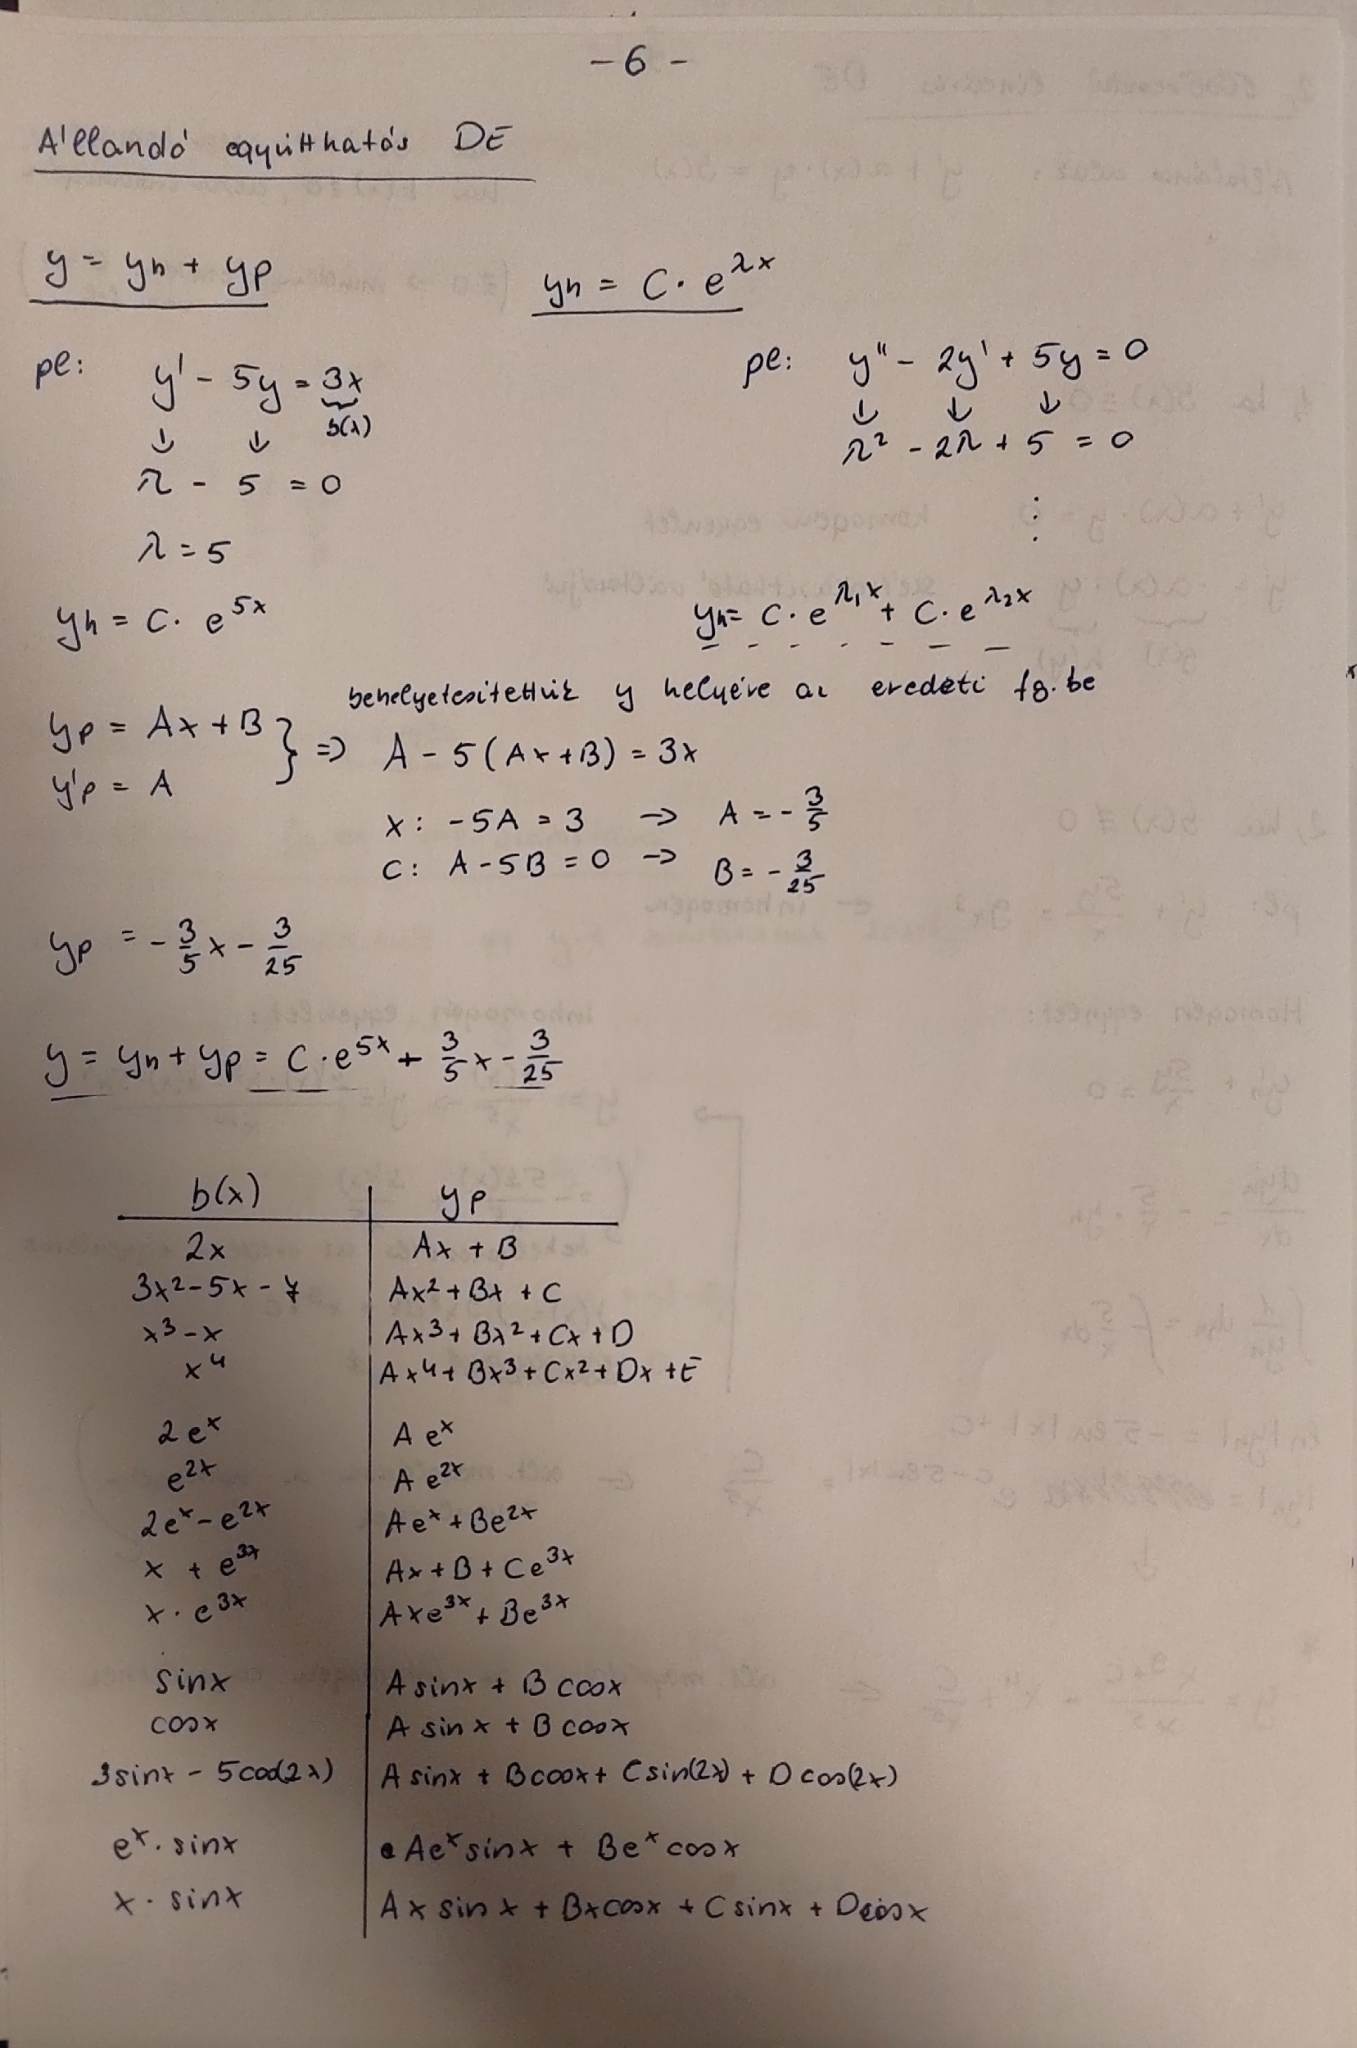 - 6 -
Állandó együtthatós DE
y = yh + yp    yh = C · e^λx
pl: y' - 5y = 3x    pl: y'' - 2y' + 5y = 0
b(x)
↓ ↓    ↓ ↓ ↓
λ - 5 = 0    λ² - 2λ + 5 = 0
λ = 5    ⋮
yh = C · e^5x    yh = C · e^λ₁x + C · e^λ₂x
behelyetesítettük y helyére az eredeti fg. be
yp = Ax + B } => A - 5(Ax + B) = 3x
y'p = A
x: -5A = 3 → A = -3/5
C: A - 5B = 0 → B = -3/25
yp = -3/5 x - 3/25
y = yh + yp = C · e^5x + 3/5 x - 3/25
b(x) | yp
2x | Ax + B
3x² - 5x - 7 | Ax² + Bx + C
x³ - x | Ax³ + Bx² + Cx + D
x⁴ | Ax⁴ + Bx³ + Cx² + Dx + E
2e^x | A e^x
e^2x | A e^2x
2e^x - e^2x | Ae^x + Be^2x
x + e^3x | Ax + B + Ce^3x
x · e^3x | Axe^3x + Be^3x
sinx | A sinx + B cosx
cosx | A sinx + B cosx
3sinx - 5cos(2x) | A sinx + B cosx + C sin(2x) + D cos(2x)
e^x · sinx | Ae^x sinx + Be^x cosx
x · sinx | Ax sinx + Bx cosx + C sinx + D cosx